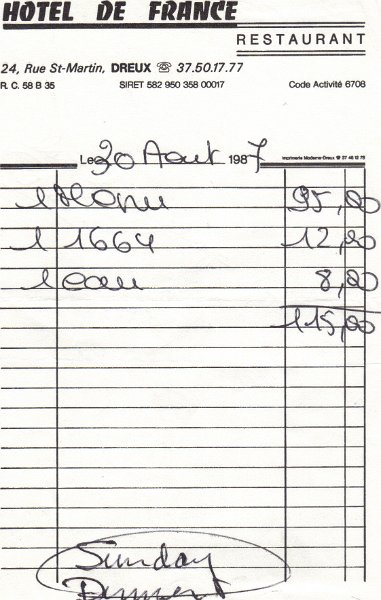 HOTEL DE FRANCE
RESTAURANT
24, Rue St-Martin, DREUX ☏ 37.50.17.77
R. C. 58 B 35 SIRET 582 950 358 00017 Code Activité 6708
Le 30 Aout 1987 Imprimerie Moderne-Dreux ☏ 37 46 12 78
1 Menu 95,00
1 1664 12,00
1 eau 8,00
115,00
Sunday